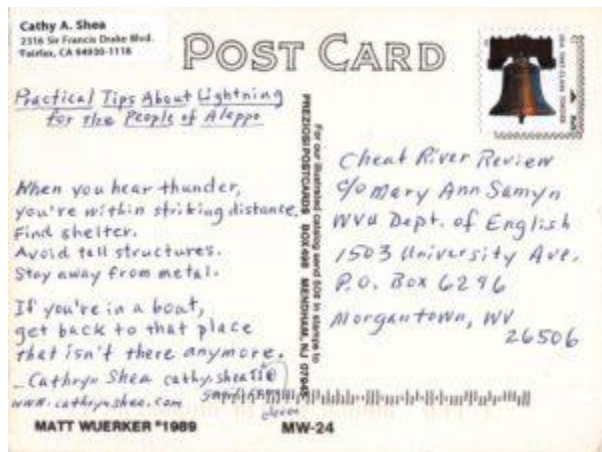 Cathy A. Shea
2316 Sir Francis Drake Blvd.
Fairfax, CA 94930-1118
POST CARD
USA FIRST-CLASS FOREVER
Practical Tips About Lightning
for the People of Aleppo
When you hear thunder,
you're within striking distance.
Find shelter.
Avoid tall structures.
Stay away from metal.
If you're in a boat,
get back to that place
that isn't there anymore.
—Cathryn Shea cathy.shea
www.cathrynshea.com
eleven
MATT WUERKER ©1989
MW-24
For our illustrated catalog send 50¢ in stamps to
PREZIOSI POSTCARDS BOX 498 MENDHAM, NJ 07945
Cheat River Review
c/o Mary Ann Samyn
WVU Dept. of English
1503 University Ave.
P.O. Box 6296
Morgantown, WV
26506